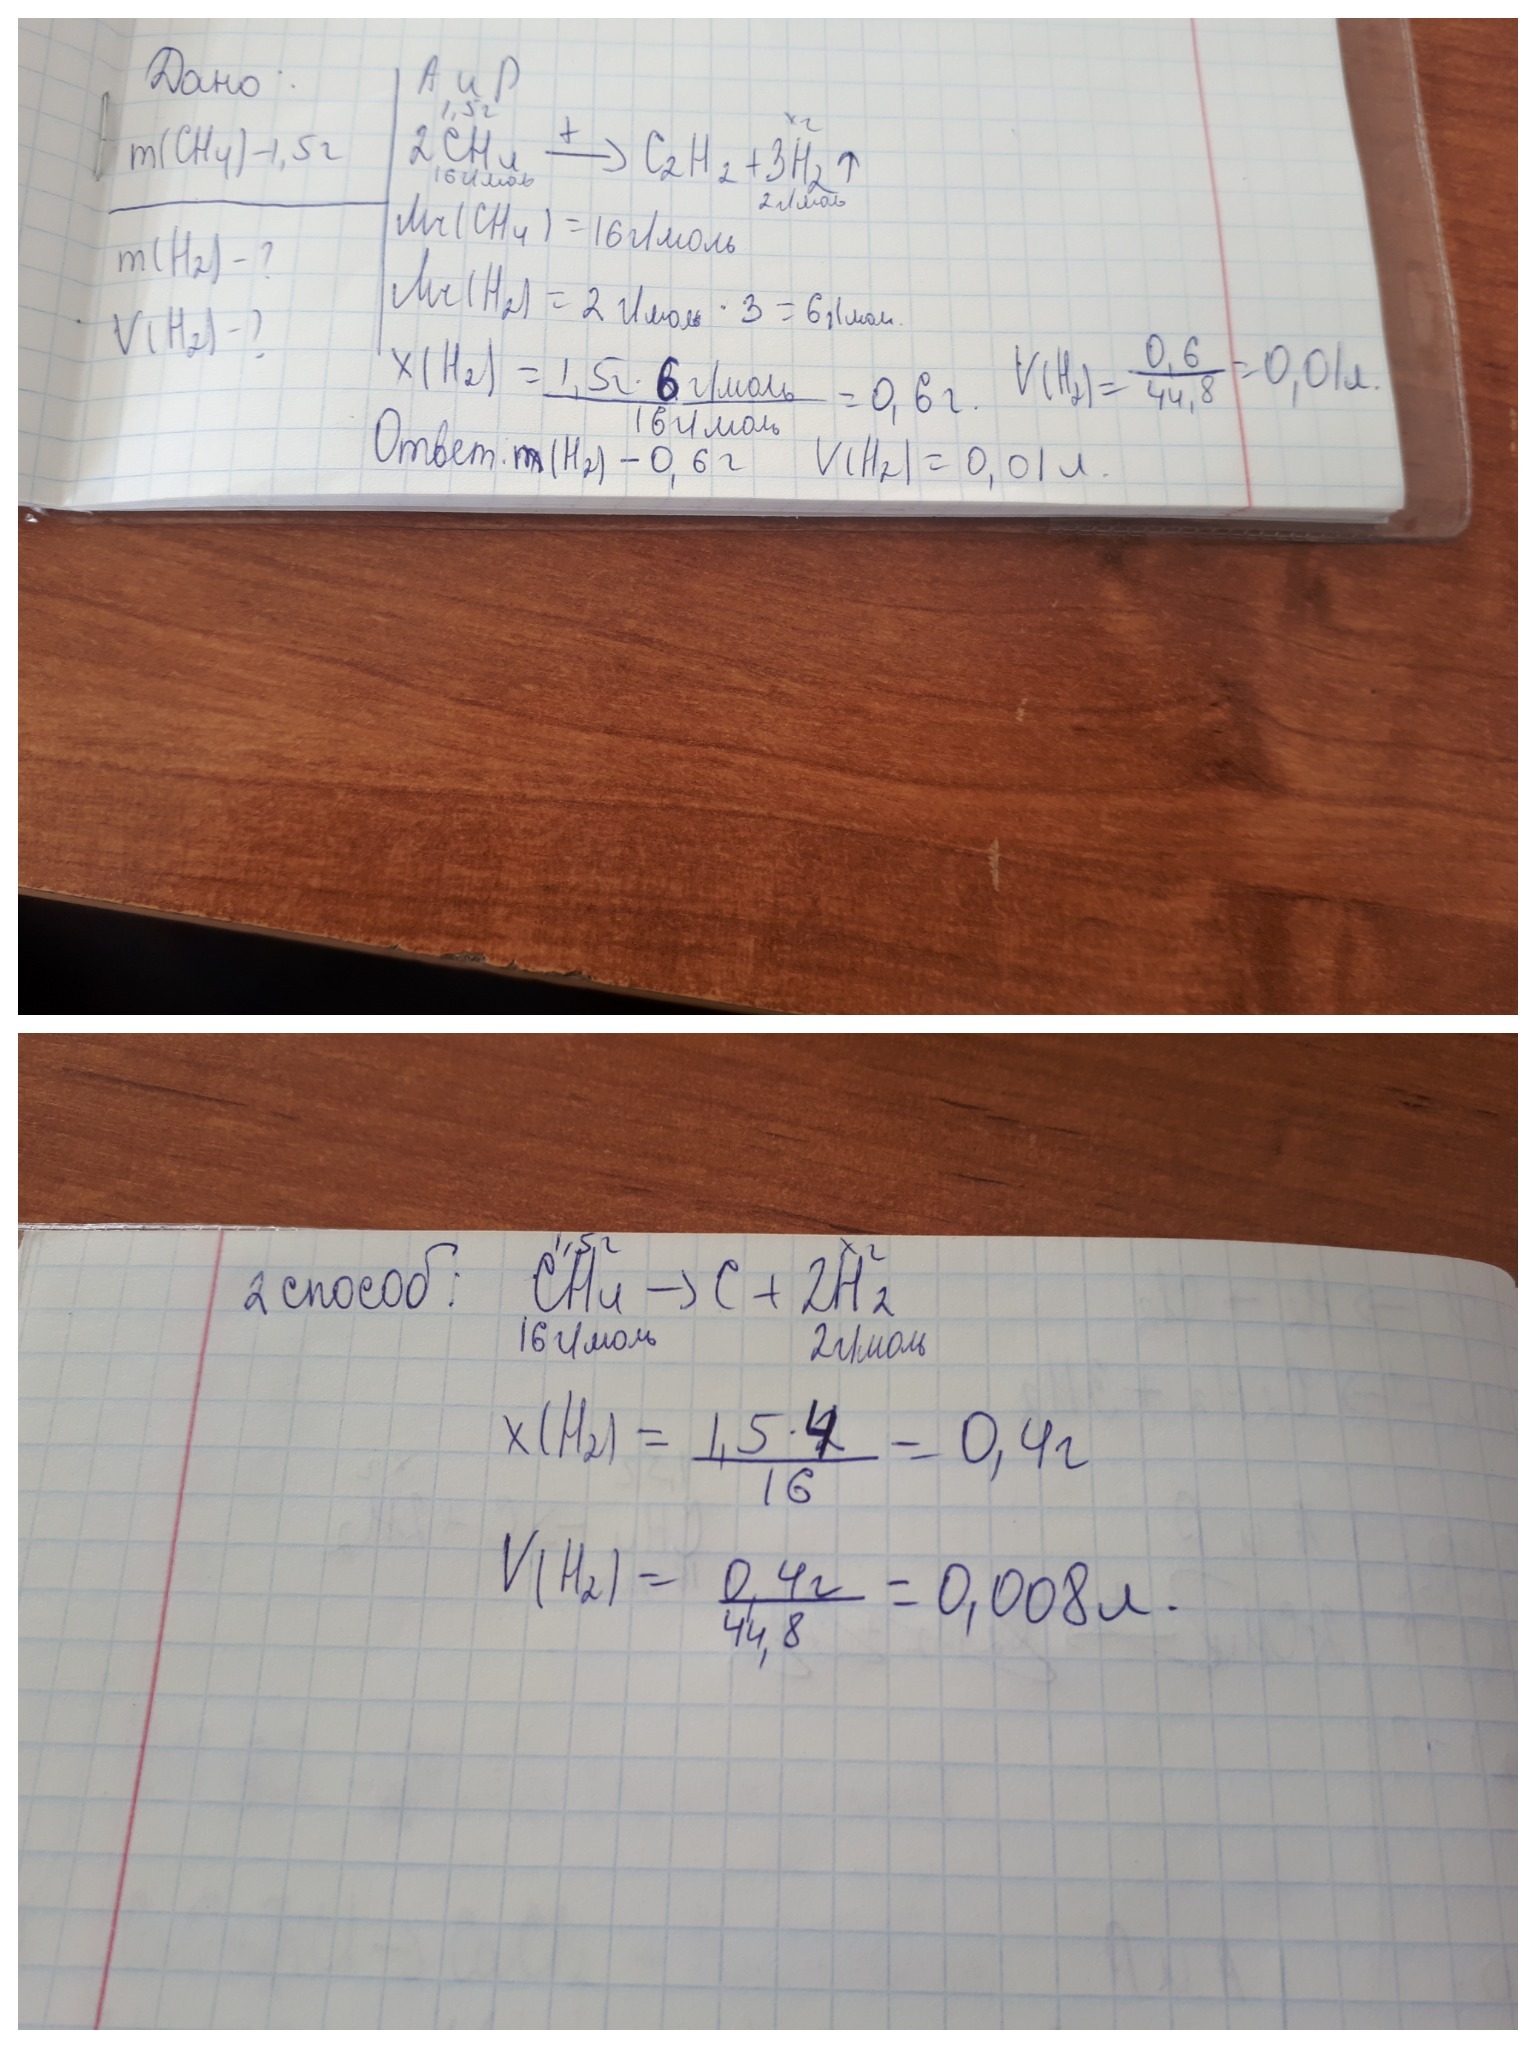 Дано:
m(CH4)-1,5г
m(H2)-?
V(H2)-?
А и Р
1,5г xг
2CH4 t→ C2H2+3H2↑
16г/моль 2г/моль
Mr(CH4)=16г/моль
Mr(H2)=2г/моль·3=6г/мол.
x(H2)=1,5г·6г/моль/16г/моль=0,6г. V(H2)=0,6/44,8=0,01л.
Ответ:m(H2)-0,6г V(H2)=0,01л.
1,5г xг
2 способ: CH4→C+2H2
16г/моль 2г/моль
x(H2)=1,5·4/16=0,4г
V(H2)=0,4г/44,8=0,008л.